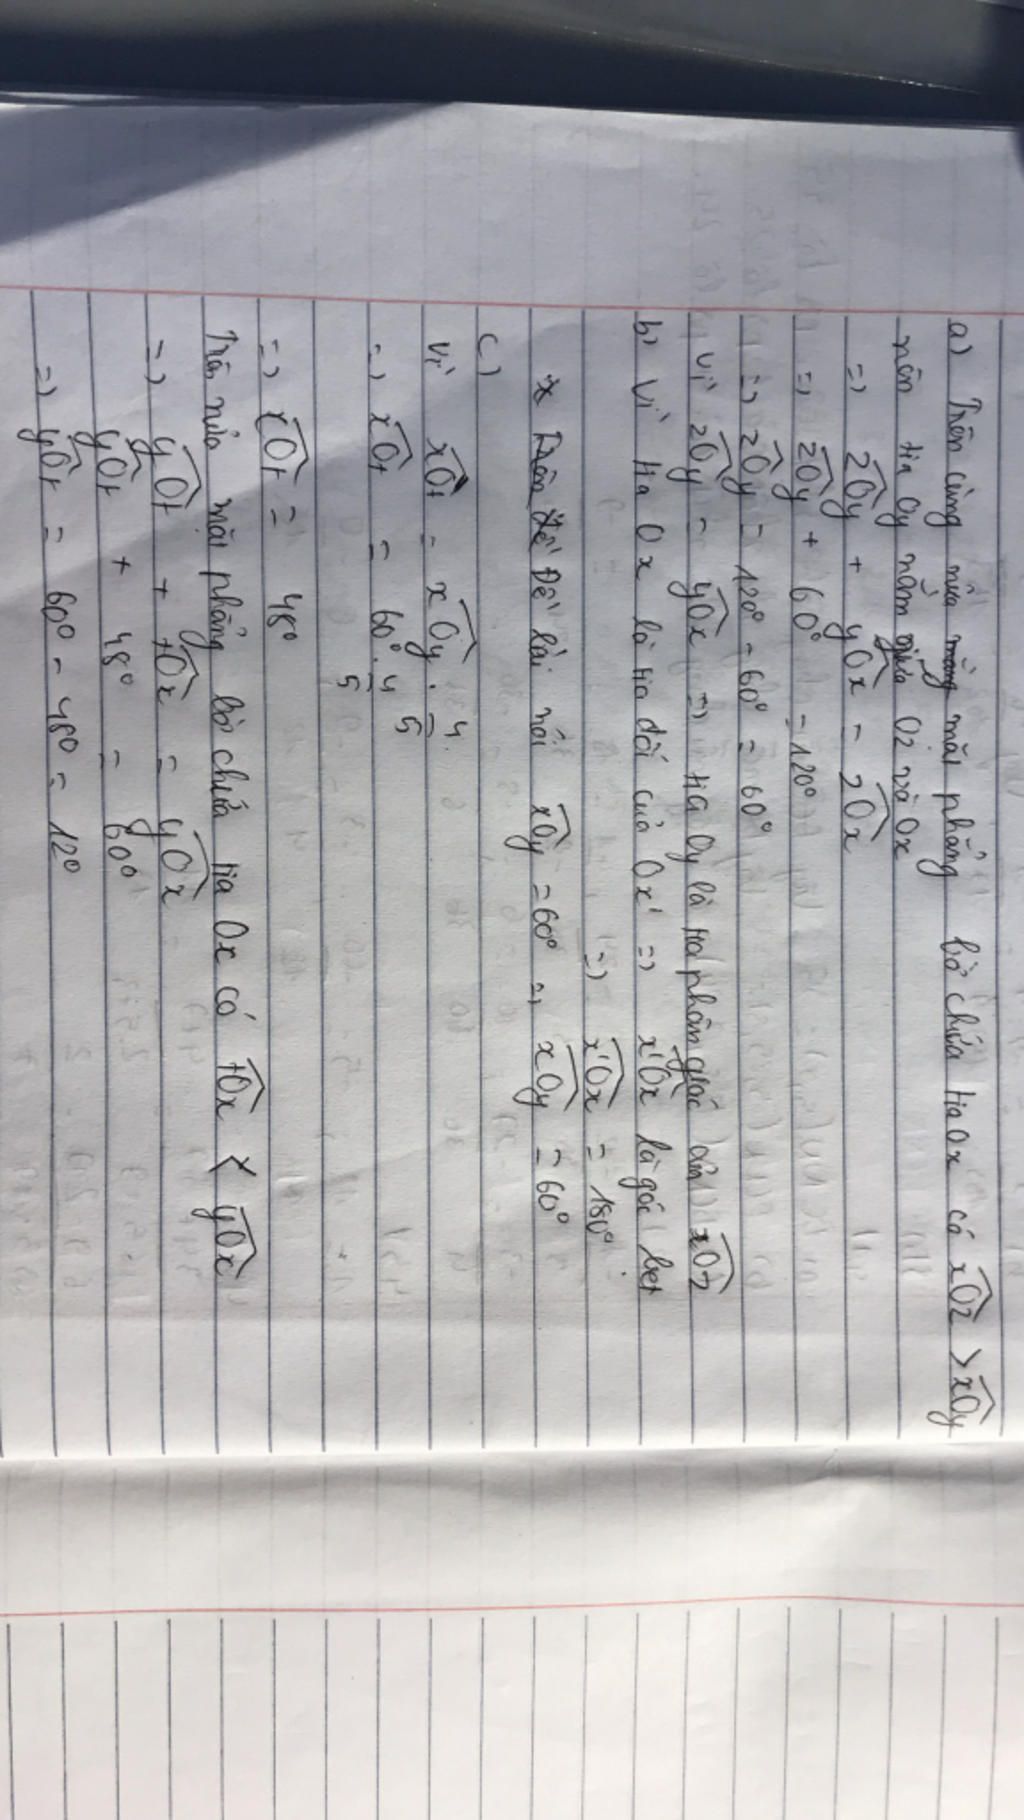 a) Trên cùng nửa mặt phẳng bờ chứa tia Ox có xOz > xOy
nên tia Oy nằm giữa Oz và Ox
=) zOy + yOx = zOx
=) zOy + 60° = 120°
=) zOy = 120° - 60° = 60°
Vì zOy = yOx =) tia Oy là tia phân giác của xOz
b) Vì tia Ox là tia đối của Ox' =) x'Ox là góc bẹt
=) x'Ox = 180°
* Đề bài nói xOy = 60° =) xOy = 60°
c)
Vì xOt = xOy . 4/5
=) xOt = 60° . 4/5
=) xOt = 48°
Trên nửa mặt phẳng bờ chứa tia Ox có tOx < yOx
=) yOt + tOx = yOx
yOt + 48° = 60°
=) yOt = 60° - 48° = 12°